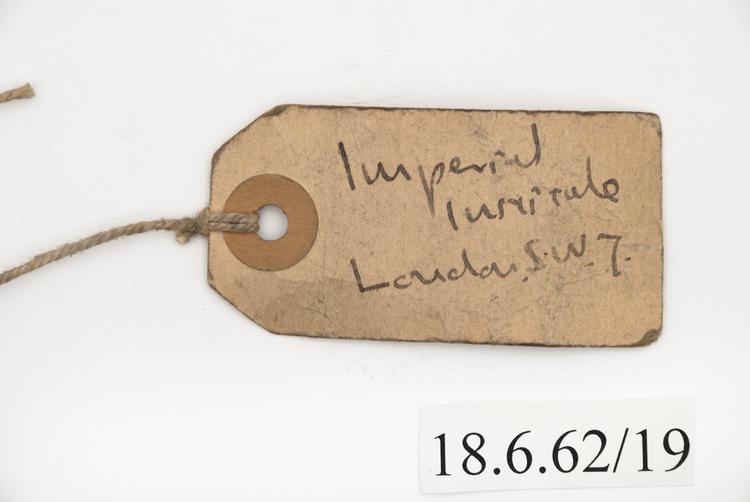 Imperial
Institute
London. S.W.7.
18.6.62/19